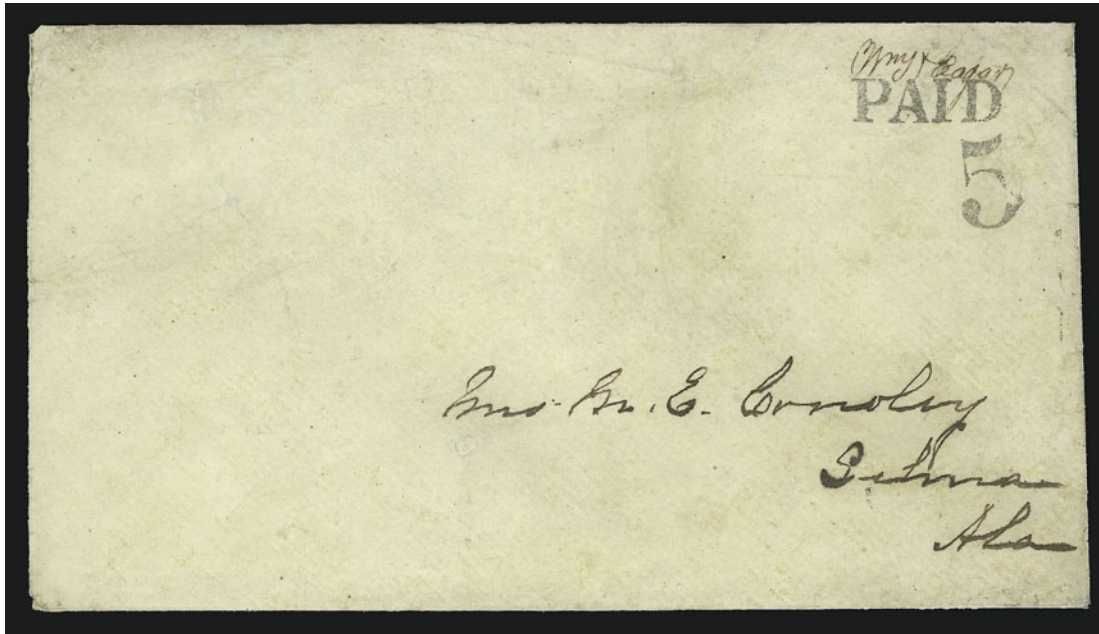 Wm H Eagar
PAID
5
Mrs. M. E. Conoley
Selma
Ala